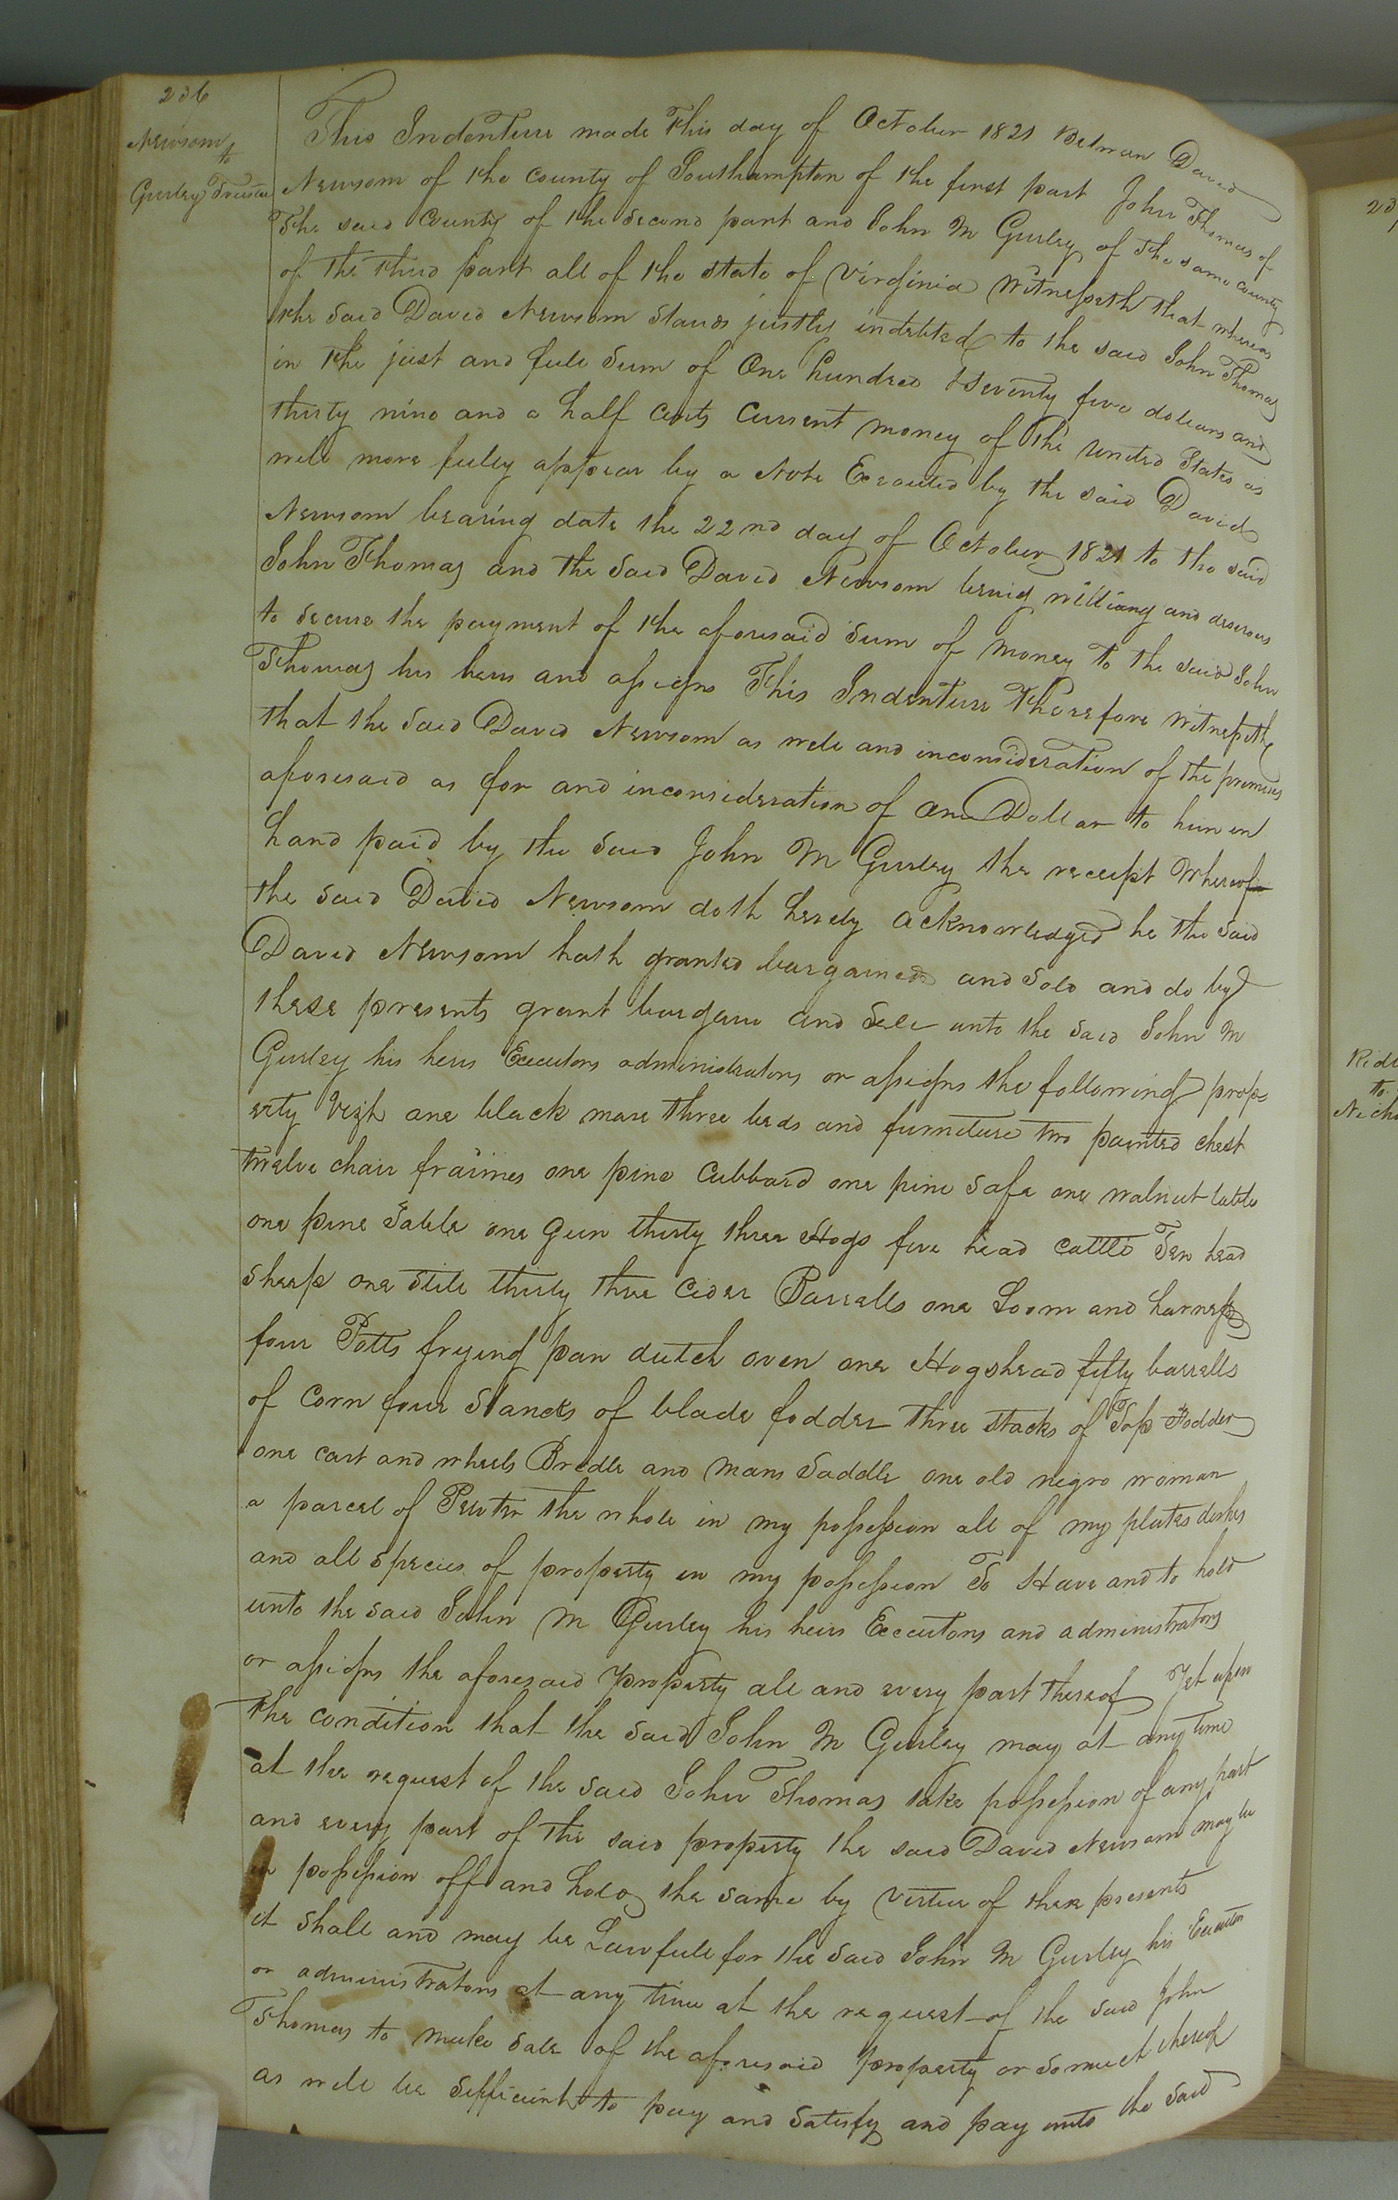 236
Newsom
to
Gurley Trustee
This Indenture made this day of October 1821 Between David
Newsom of the County of Southampton of the first part John Thomas of
the said County of the Second part and John M Gurley of the same County
of the third part all of the state of Virginia Witnesseth that whereas
the said David Newsom Stands justly indebted to the said John Thomas
in the just and full Sum of One hundred & Seventy five dollars and
thirty nine and a half Cents Current money of the United States as
will more fully appear by a Note Executed by the said David
Newsom bearing date the 22nd day of October 1821 to the said
John Thomas and the Said David Newsom being willing and desirous
to Secure the payment of the aforesaid Sum of Money to the said John
Thomas his heirs and assigns This Indenture Therefore Witnesseth
that the Said David Newsom as well and inconsideration of the premises
aforesaid as for and inconsideration of One Dollar to him in
hand paid by the Said John M Gurley the receipt Whereof
the said David Newsom doth hereby acknowledged he the said
David Newsom hath granted bargained and Sold and do by
these presents grant bargain and Sell unto the Said John M
Gurley his heirs Executors administrators or assigns the following prop-
erty Vizt one black mare three beds and furniture two painted chest
twelve chair fraimes one pine Cubbard one pine Safe one walnut table
one pine Table one Gun thirty three Hogs five head cattle Ten head
Sheep one Still thirty three Cider Barrells one Loom and harness
four Potts frying pan dutch oven one Hogshead fifty barrells
of Corn four Stancks of blade fodder three Stacks of Top Fodder
one cart and wheels Bredle and mans Saddle one old negro woman
a parcel of Pewter the whole in my possession all of my plates dishes
and all Species of property in my possession To Have and to hold
unto the said John M Gurley his heirs Executors and administrators
or assigns the aforesaid property all and every part thereof Yet upon
the condition that the said John M Gurley may at any time
at the request of the said John Thomas take possession of any part
and every part of the said property the said David Newsom may be
in possession off and hold the same by Virtue of these presents
it shall and may be Lawfull for the said John M Gurley his Executors
or administrators at any time at the request of the said John
Thomas to make Sale of the aforesaid property or so much thereof
as will be Sufficient to pay and Satisfy and pay unto the said
to